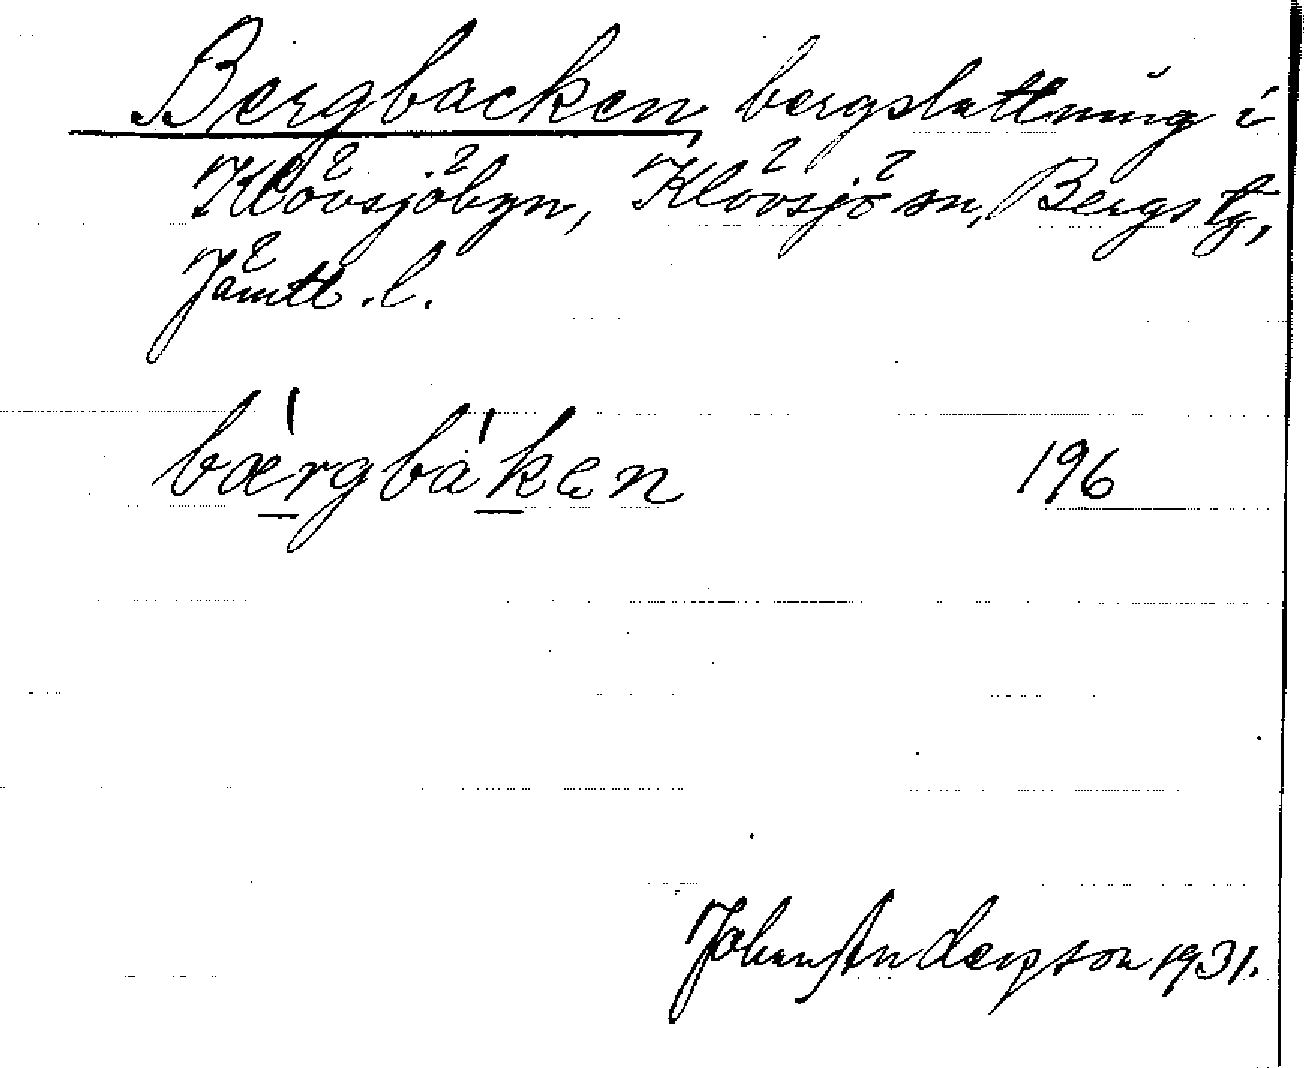 Bergbacken, bergsluttning i
Klövsjöbyn, Klövsjö sn, Bergs tg,
Jämtl. l.
bærgbakɐn 196
Johan Anderson 1931.